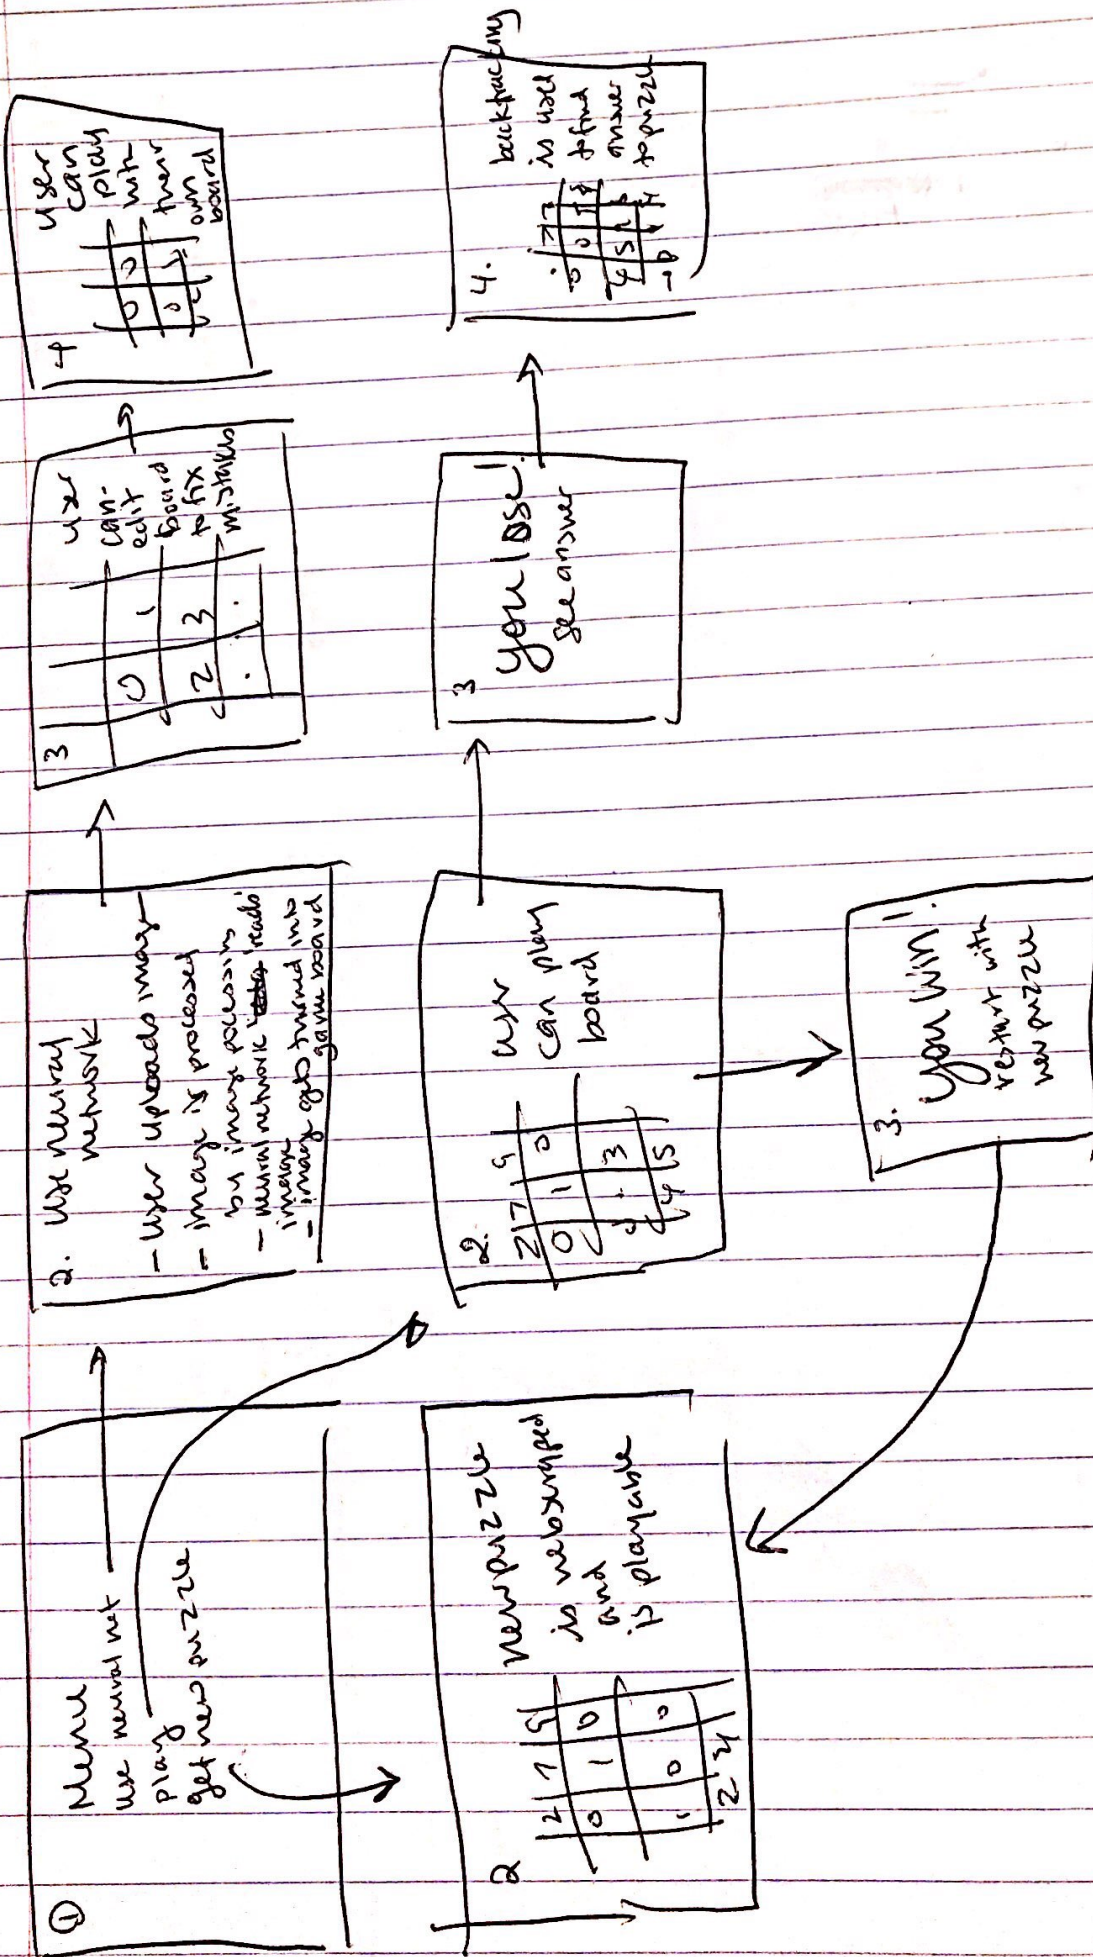 ①
Menu
use neural net
play
get new puzzle
2. Use neural
network
- user uploads image
- image is processed
by image processing
- neural network reads
image
- image gets turned into
game board
3
0 1
2 3
user
can
edit
board
to fix
mistakes
4
user
can
play
with
their
own
board
2
2 7 9
0 1 0
1 0 0
2 4
new puzzle
is webscraped
and
is playable
2.
2 7 9
0 1 0
3
4 5
user
can play
board
3
you lose!
see answer
4.
backtracking
is used
to find
answer
to puzzle
3.
you win!
restart with
new puzzle